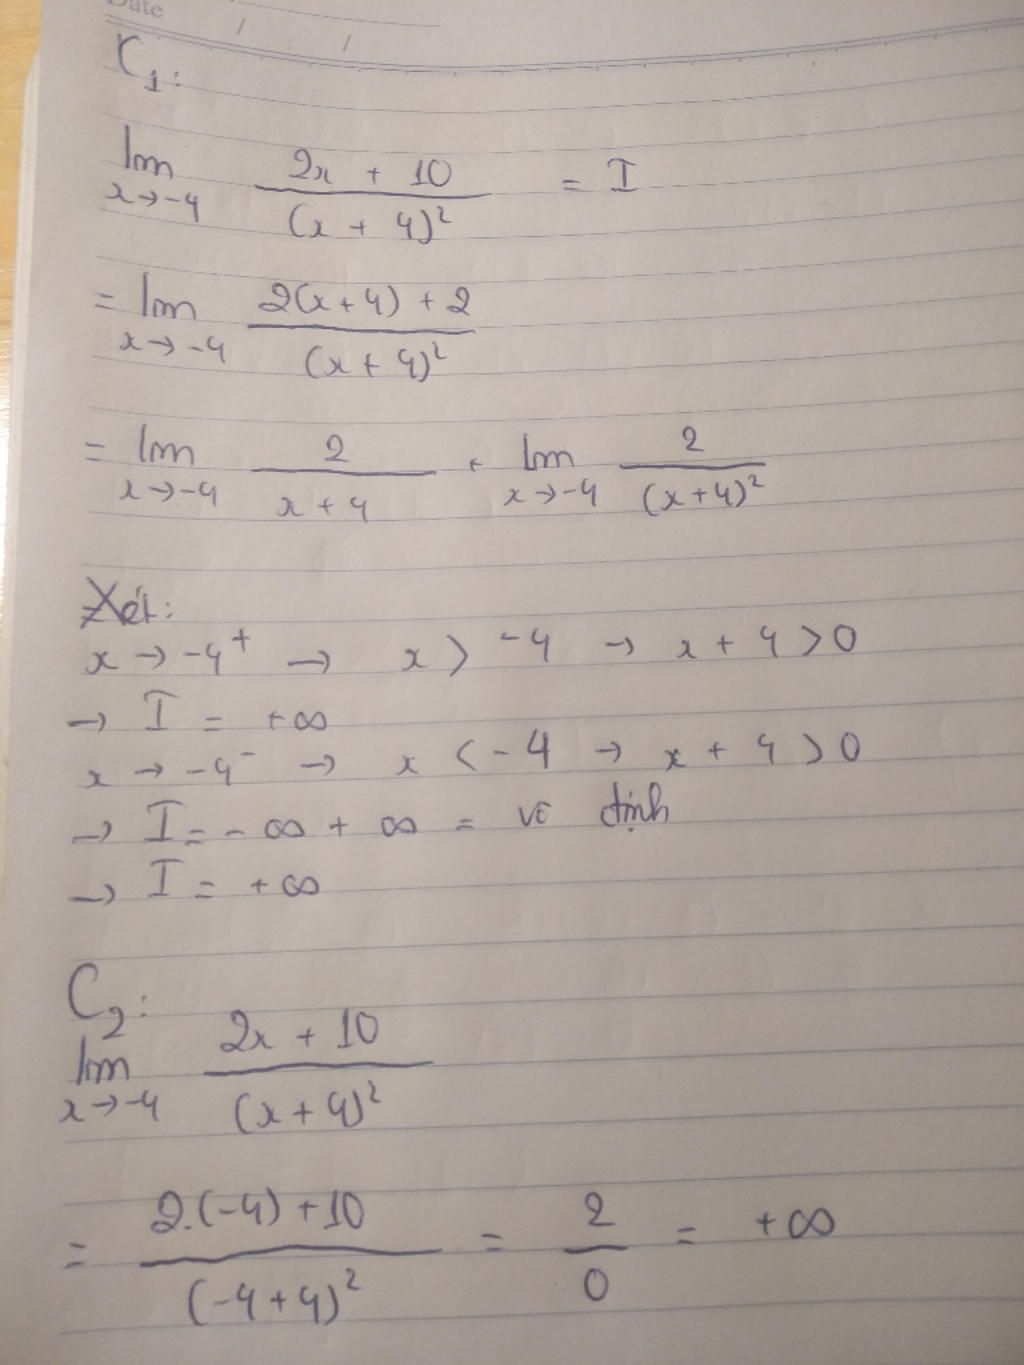 Date / /
C₁:
lim x→-4 (2x + 10)/(x + 4)² = I
= lim x→-4 (2(x+4) + 2)/(x + 4)²
= lim x→-4 2/(x + 4) + lim x→-4 2/(x+4)²
Xét:
x → -4⁺ → x > -4 → x + 4 > 0
→ I = +∞
x → -4⁻ → x < -4 → x + 4 > 0
→ I = -∞ + ∞ = vô định
→ I = +∞
C₂:
lim x→-4 (2x + 10)/(x + 4)²
= (2.(-4) + 10)/(-4+4)² = 2/0 = +∞